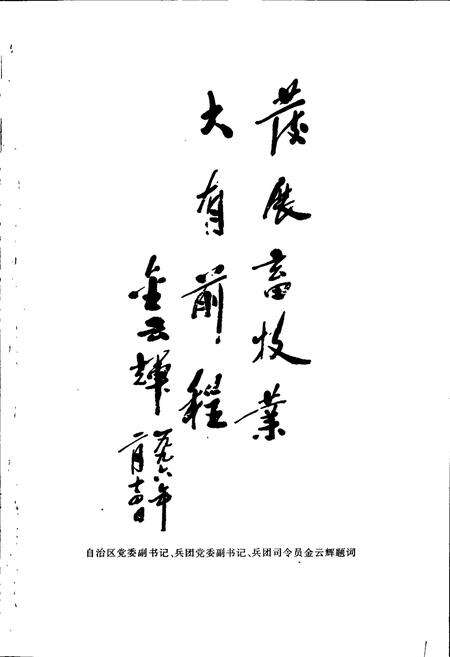 发展畜牧业
大有前程
金云辉
一九九六年
二月十四日
自治区党委副书记、兵团党委副书记、兵团司令员金云辉题词